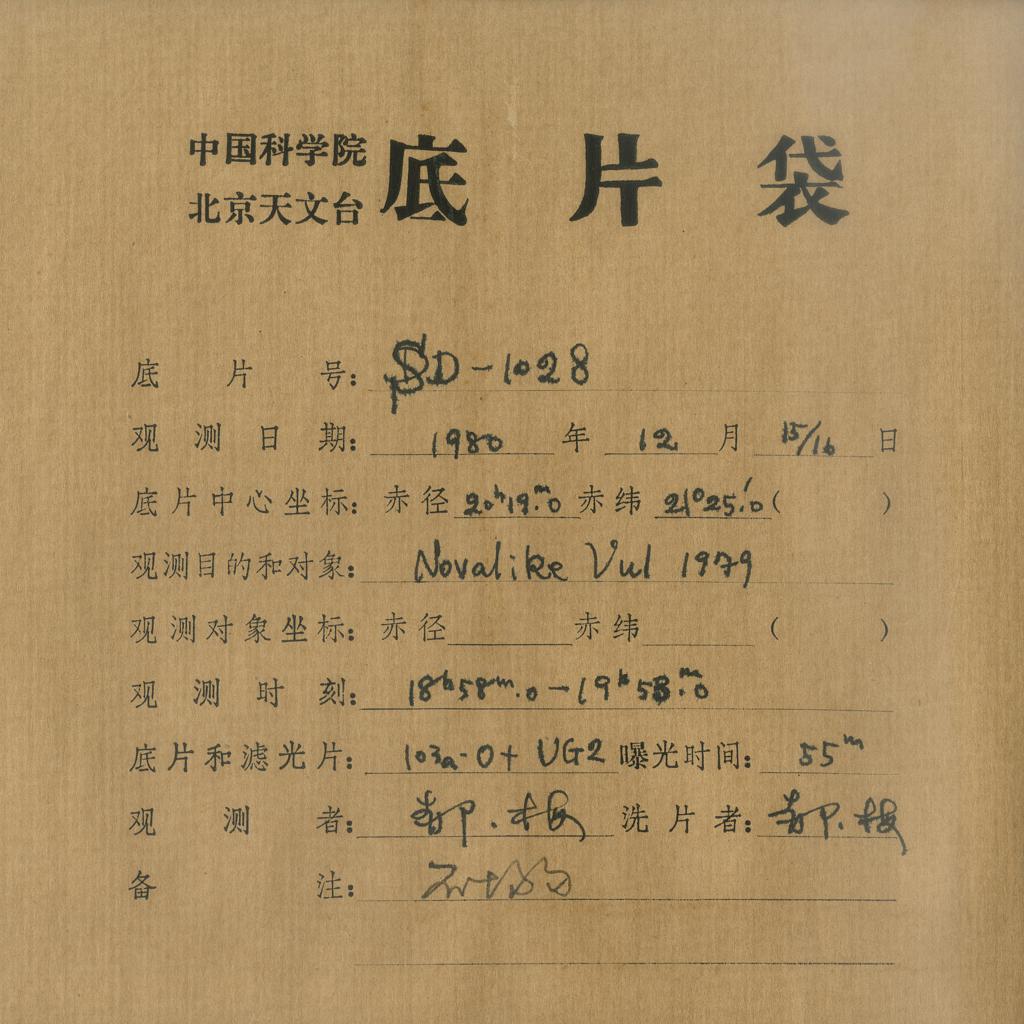 中国科学院
北京天文台
底片袋
底片号: SD-1028
观测日期: 1980 年 12 月 15/16 日
底片中心坐标: 赤径 20h19m.0 赤纬 21°25′.0 ( )
观测目的和对象: Novalike Vul 1979
观测对象坐标: 赤径 赤纬 ( )
观测时刻: 18h58m.0-19h53m.0
底片和滤光片: 103a-O+UG2 曝光时间: 55m
观测者: 郝.梅 洗片者: 郝.梅
备注: